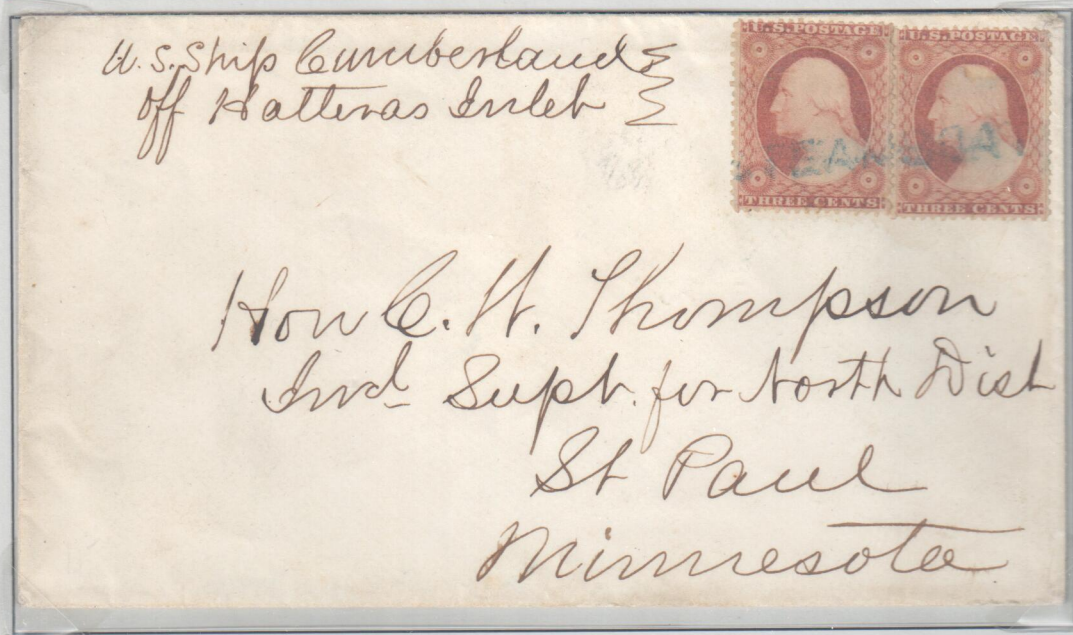 U.S. Ship Cumberland
off Hatteras Inlet
U.S. POSTAGE U.S. POSTAGE
THREE CENTS THREE CENTS
Hon C. W. Thompson
Ind Supt. for North Dist
St Paul
Minnesota